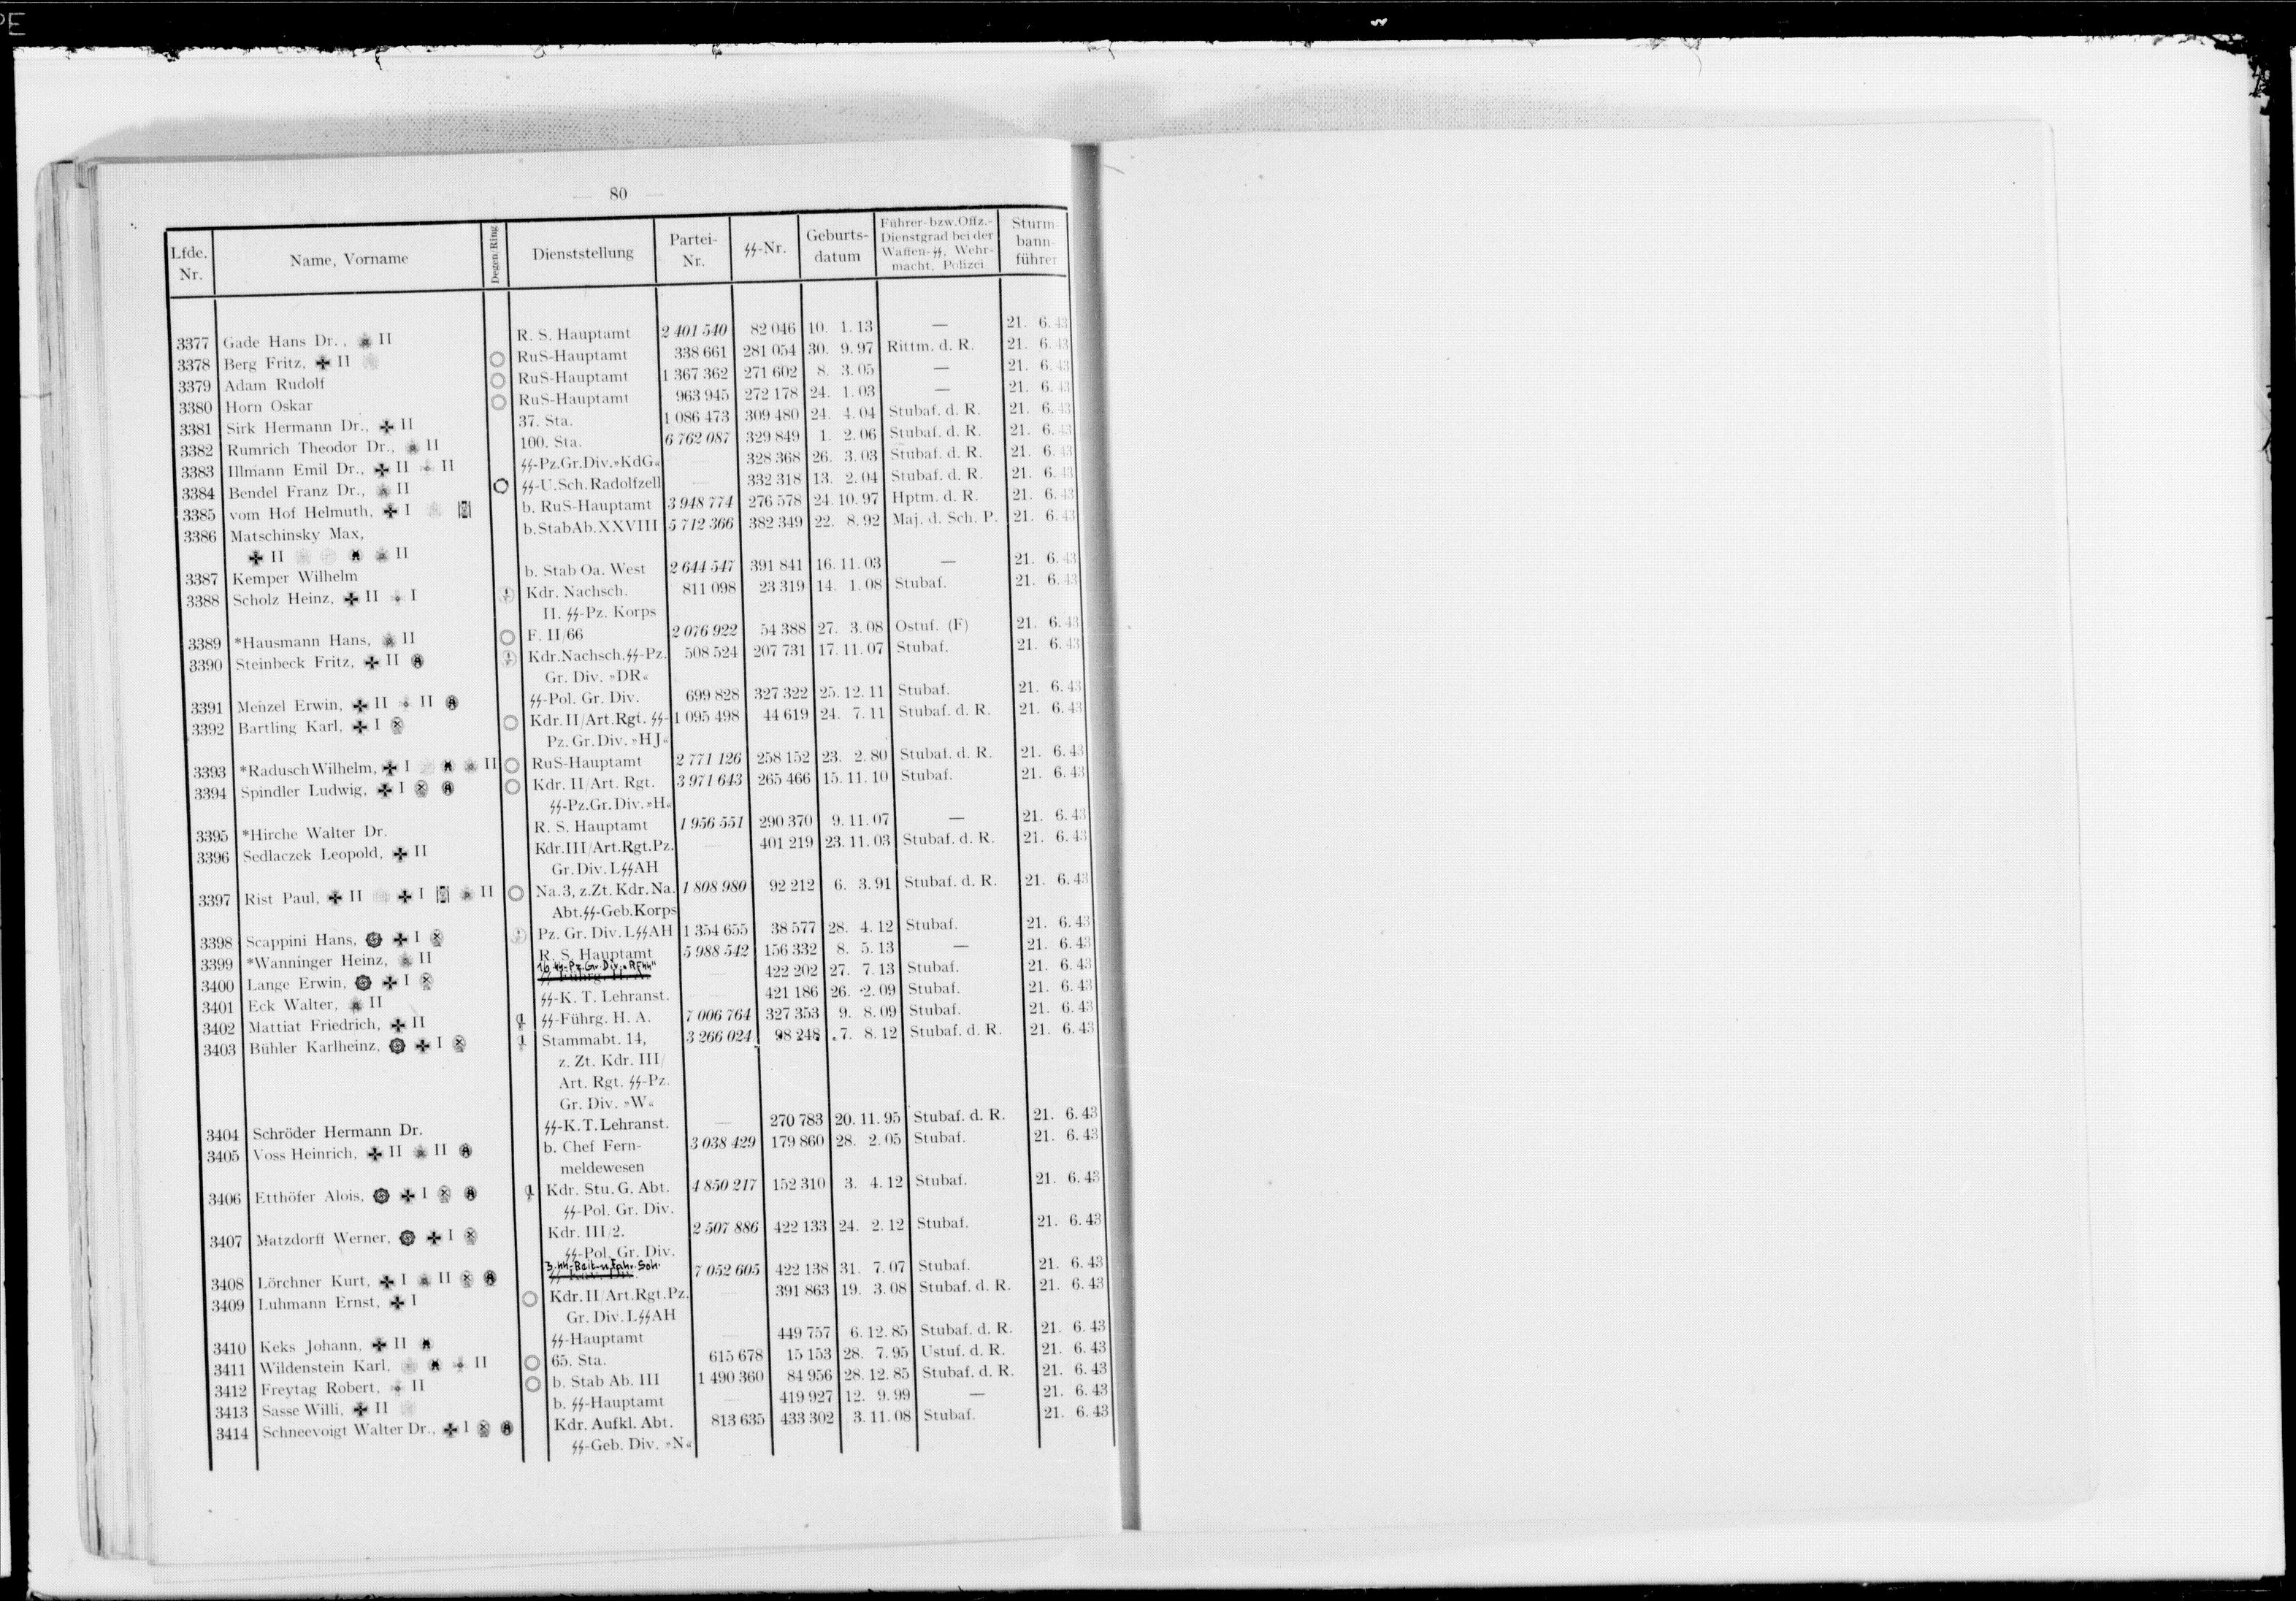 PE
80
Lfde. Nr. Name, Vorname Degen Ring Dienststellung Partei-Nr. ᛋᛋ-Nr. Geburts-datum Führer- bzw. Offz.-Dienstgrad bei der Waffen-ᛋᛋ, Wehr-macht, Polizei Sturm-bann-führer
3377 Gade Hans Dr., II R. S. Hauptamt 2 401 540 82 046 10. 1. 13 — 21. 6. 43
3378 Berg Fritz, II RuS-Hauptamt 338 661 281 054 30. 9. 97 Rittm. d. R. 21. 6. 43
3379 Adam Rudolf RuS-Hauptamt 1 367 362 271 602 8. 3. 05 — 21. 6. 43
3380 Horn Oskar RuS-Hauptamt 963 945 272 178 24. 1. 03 — 21. 6. 43
3381 Sirk Hermann Dr., II 37. Sta. 1 086 473 309 480 24. 4. 04 Stubaf. d. R. 21. 6. 43
3382 Rumrich Theodor Dr., II 100. Sta. 6 762 087 329 849 1. 2. 06 Stubaf. d. R. 21. 6. 43
3383 Illmann Emil Dr., II II ᛋᛋ-Pz.Gr.Div.»KdG« — 328 368 26. 3. 03 Stubaf. d. R. 21. 6. 43
3384 Bendel Franz Dr., II ᛋᛋ-U.Sch.Radolfzell — 332 318 13. 2. 04 Stubaf. d. R. 21. 6. 43
3385 vom Hof Helmuth, I b. RuS-Hauptamt 3 948 774 276 578 24. 10. 97 Hptm. d. R. 21. 6. 43
3386 Matschinsky Max, b.StabAb.XXVIII 5 712 366 382 349 22. 8. 92 Maj. d. Sch. P. 21. 6. 43
II II
3387 Kemper Wilhelm b. Stab Oa. West 2 644 547 391 841 16. 11. 03 — 21. 6. 43
3388 Scholz Heinz, II I Kdr. Nachsch. 811 098 23 319 14. 1. 08 Stubaf. 21. 6. 43
II. ᛋᛋ-Pz. Korps
3389 *Hausmann Hans, II F. II/66 2 076 922 54 388 27. 3. 08 Ostuf. (F) 21. 6. 43
3390 Steinbeck Fritz, II Kdr.Nachsch.ᛋᛋ-Pz. 508 524 207 731 17. 11. 07 Stubaf. 21. 6. 43
Gr. Div. »DR«
3391 Menzel Erwin, II II ᛋᛋ-Pol. Gr. Div. 699 828 327 322 25. 12. 11 Stubaf. 21. 6. 43
3392 Bartling Karl, I Kdr. II/Art.Rgt. ᛋᛋ- 1 095 498 44 619 24. 7. 11 Stubaf. d. R. 21. 6. 43
Pz. Gr. Div. »HJ«
3393 *Radusch Wilhelm, I II RuS-Hauptamt 2 771 126 258 152 23. 2. 80 Stubaf. d. R. 21. 6. 43
3394 Spindler Ludwig, I Kdr. II/Art. Rgt. 3 971 643 265 466 15. 11. 10 Stubaf. 21. 6. 43
ᛋᛋ-Pz.Gr.Div. »H«
3395 *Hirche Walter Dr. R. S. Hauptamt 1 956 551 290 370 9. 11. 07 — 21. 6. 43
3396 Sedlaczek Leopold, II Kdr.III/Art.Rgt.Pz. — 401 219 23. 11. 03 Stubaf. d. R. 21. 6. 43
Gr. Div. LᛋᛋAH
3397 Rist Paul, II I II Na. 3, z.Zt. Kdr. Na. 1 808 980 92 212 6. 3. 91 Stubaf. d. R. 21. 6. 43
Abt.ᛋᛋ-Geb.Korps
3398 Scappini Hans, I Pz. Gr. Div. LᛋᛋAH 1 354 655 38 577 28. 4. 12 Stubaf. 21. 6. 43
3399 *Wanninger Heinz, II R. S. Hauptamt 5 988 542 156 332 8. 5. 13 — 21. 6. 43
3400 Lange Erwin, I 16. ᛋᛋ-Pz.Gr.Div. „RFᛋᛋ" — 422 202 27. 7. 13 Stubaf. 21. 6. 43
3401 Eck Walter, II ᛋᛋ-K. T. Lehranst. — 421 186 26. 2. 09 Stubaf. 21. 6. 43
3402 Mattiat Friedrich, II ᛋᛋ-Führg. H. A. 7 006 764 327 353 9. 8. 09 Stubaf. 21. 6. 43
3403 Bühler Karlheinz, I Stammabt. 14, 3 266 024 98 248 7. 8. 12 Stubaf. d. R. 21. 6. 43
z. Zt. Kdr. III/
Art. Rgt. ᛋᛋ-Pz.
Gr. Div. »W«
3404 Schröder Hermann Dr. ᛋᛋ-K.T. Lehranst. — 270 783 20. 11. 95 Stubaf. d. R. 21. 6. 43
3405 Voss Heinrich, II II b. Chef Fern- 3 038 429 179 860 28. 2. 05 Stubaf. 21. 6. 43
meldewesen
3406 Etthöfer Alois, I Kdr. Stu. G. Abt. 4 850 217 152 310 3. 4. 12 Stubaf. 21. 6. 43
ᛋᛋ-Pol. Gr. Div.
3407 Matzdorff Werner, I Kdr. III/2. 2 507 886 422 133 24. 2. 12 Stubaf. 21. 6. 43
ᛋᛋ-Pol. Gr. Div.
3408 Lörchner Kurt, I II 3. ᛋᛋ-Reit- u. Fahr. Sch. 7 052 605 422 138 31. 7. 07 Stubaf. 21. 6. 43
3409 Luhmann Ernst, I Kdr. II/Art.Rgt.Pz. — 391 863 19. 3. 08 Stubaf. d. R. 21. 6. 43
Gr. Div. LᛋᛋAH
3410 Keks Johann, II ᛋᛋ-Hauptamt — 449 757 6. 12. 85 Stubaf. d. R. 21. 6. 43
3411 Wildenstein Karl, II 65. Sta. 615 678 15 153 28. 7. 95 Ustuf. d. R. 21. 6. 43
3412 Freytag Robert, II b. Stab Ab. III 1 490 360 84 956 28. 12. 85 Stubaf. d. R. 21. 6. 43
3413 Sasse Willi, II b. ᛋᛋ-Hauptamt — 419 927 12. 9. 99 — 21. 6. 43
3414 Schneevoigt Walter Dr., I Kdr. Aufkl. Abt. 813 635 433 302 3. 11. 08 Stubaf. 21. 6. 43
ᛋᛋ-Geb. Div. »N«